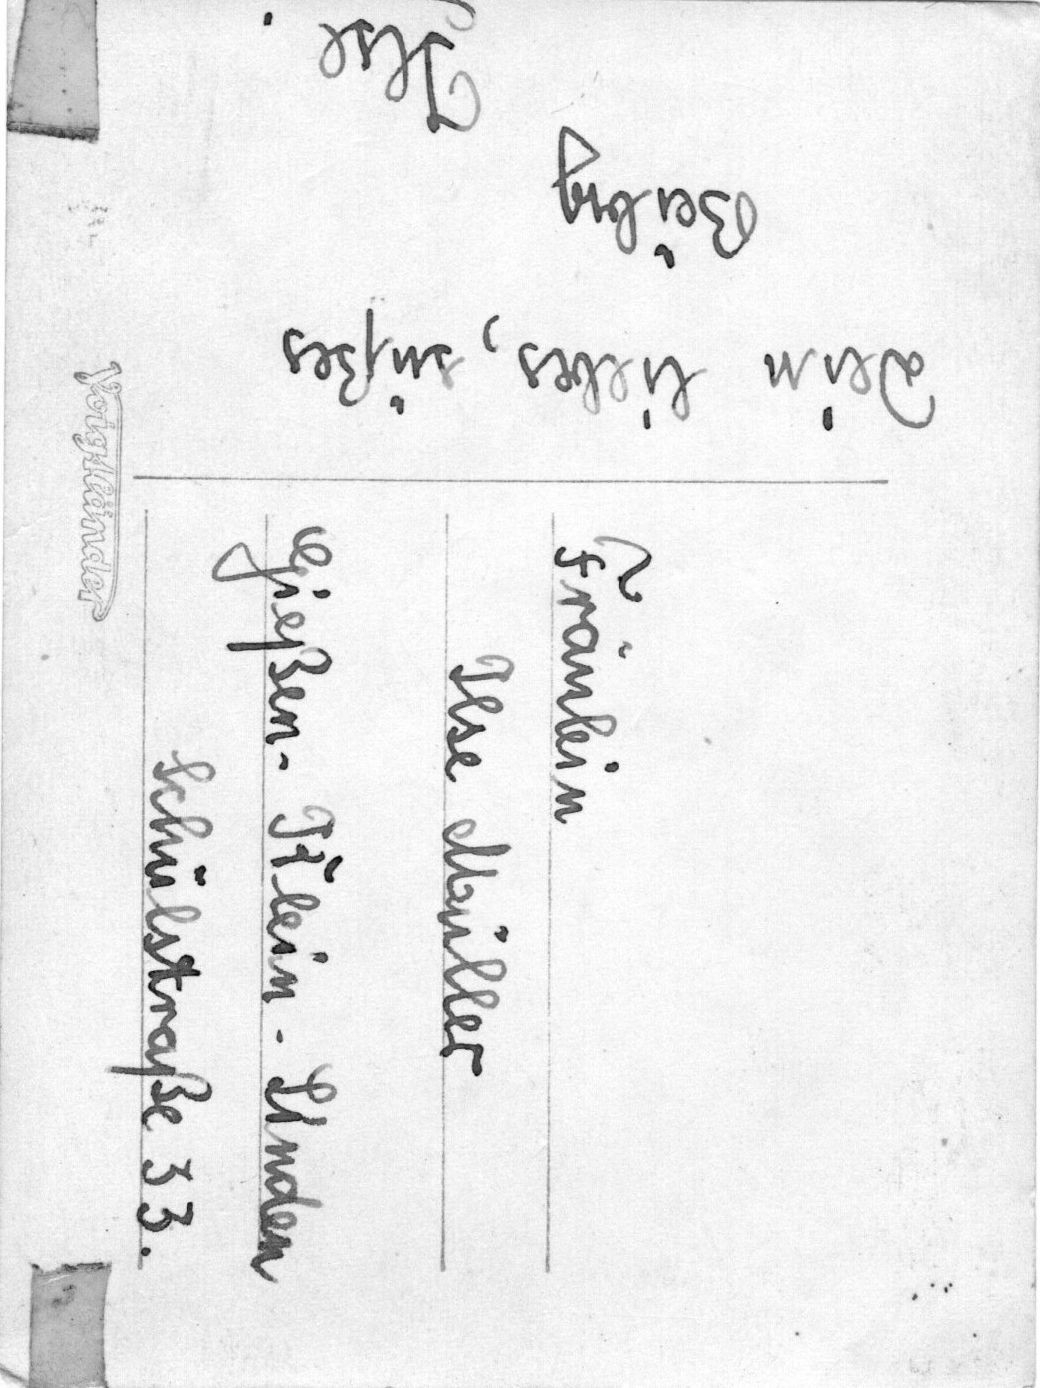 Dein liebes, süßes
Beiby
Ilse.
Fräulein
Ilse Müller
Gießen-Klein-Linden
Schulstraße 33.
Voigtländer